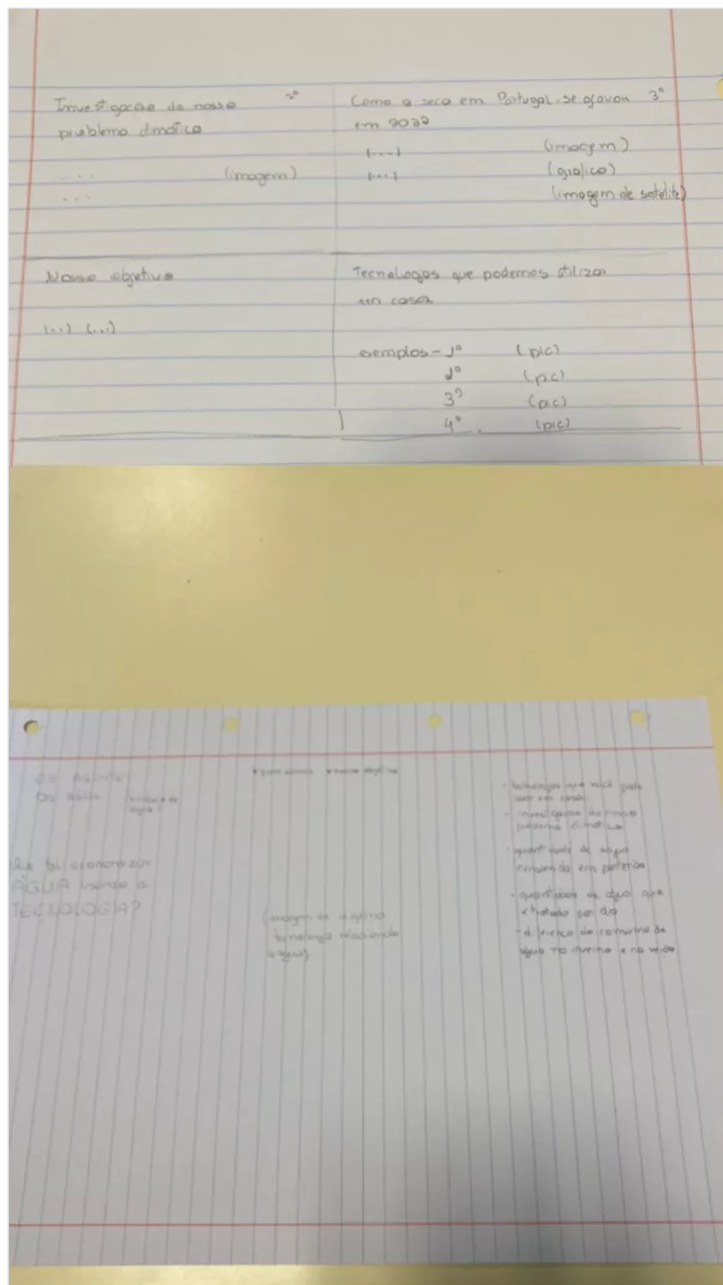 Investigação do nosso 2º
problema climático
... (imagem)
...
Como a seca em Portugal se agravou 3º
em 2022
(...) (imagem)
(...) (gráfico)
(imagem de satélite)
Nosso objetivo
(...) (...)
Tecnologias que podemos utilizar
em casa
exemplos - 1º (pic)
2º (pic)
3º (pic)
4º (pic)
Os Agentes
Da Água
Que tal economizar
ÁGUA usando a
TECNOLOGIA?
(imagem de alguma
tecnologia relacionada
água)
- tecnologias que você pode
usar em casa.
- investigação do nosso
problema climático
- quantidade de água
consumida em
- quantidade de água que
é tratada por dia
- diferença do consumo de
água no inverno e no verão